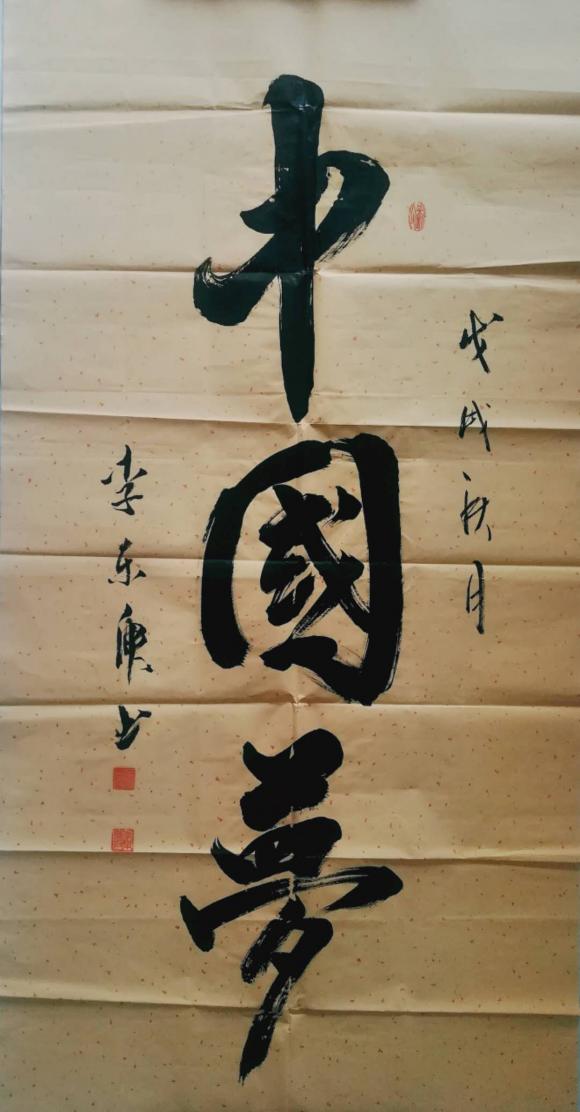 戊戌秋月
中國夢
李东庚书